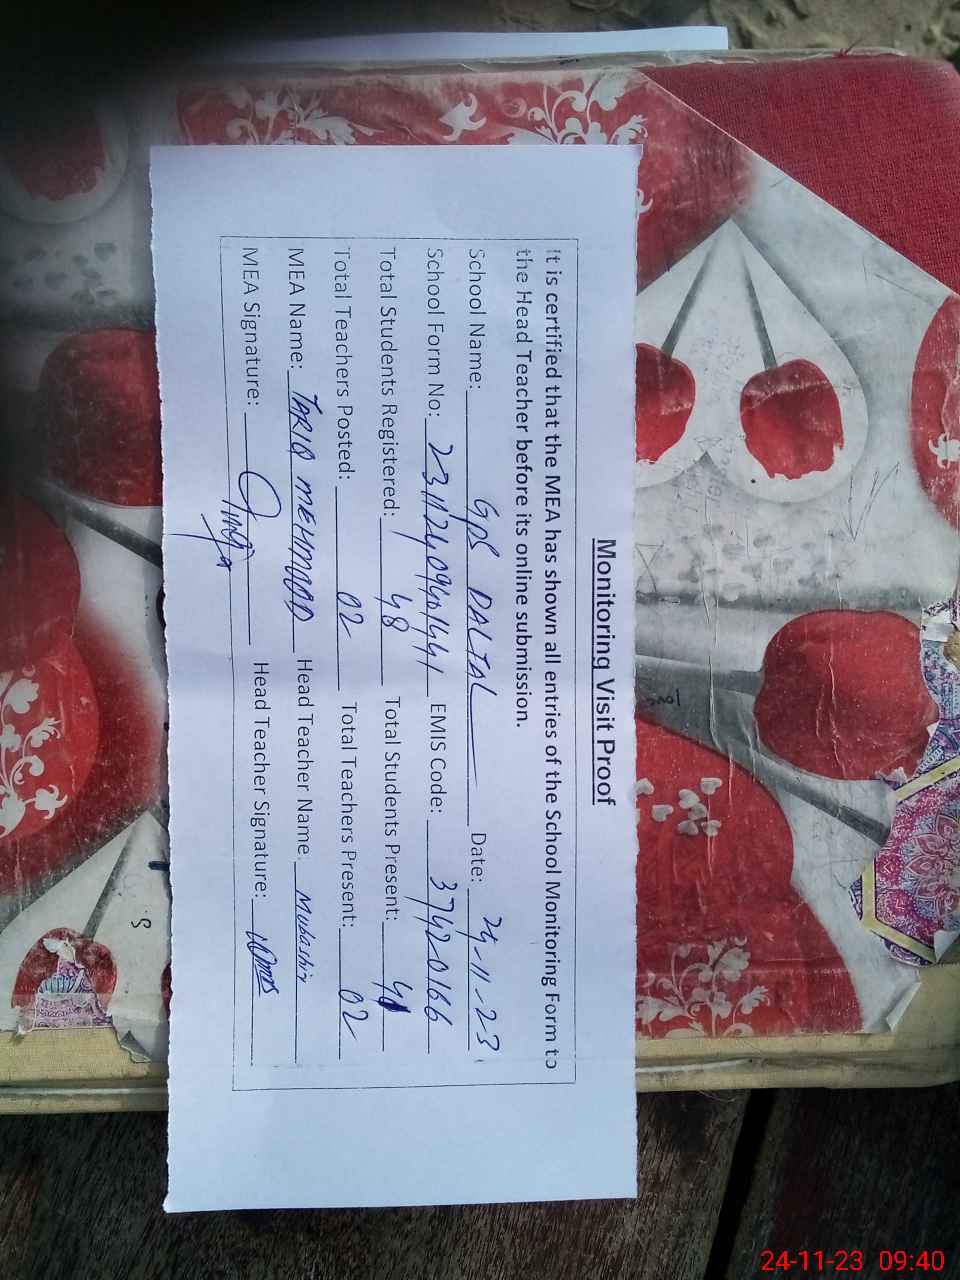 Monitoring Visit Proof
It is certified that the MEA has shown all entries of the School Monitoring Form to
the Head Teacher before its online submission.
School Name: GPS DALTAL Date: 24-11-23
School Form No: 23112409401441 EMIS Code: 37420166
Total Students Registered: 48 Total Students Present: 41
Total Teachers Posted: 02 Total Teachers Present: 02
MEA Name: TARIQ MEHMOOD Head Teacher Name: Mubashir
MEA Signature: Head Teacher Signature:
24-11-23 09:40